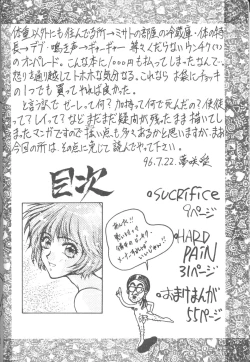 体重以外にも住んでる所→ミサトの部屋の冷蔵庫・体の特
長→デブ・鳴き声→ギャーギャー 等々くだらないウンチク(?)
のオンパレード。こんな本に1,000円も払ってしまったなんて…
怒りを通り越してトホホな気分なる。これなら お菓に チョッキ
の1つでも 買ってやれば良かった。
と言う訳で ゼーレって何? 加持って何で死んだの? 使徒
って? レイって? などまだまだ疑問が残ったまま描いてし
まったマンガですので 拙い点も多々あるかと思いますが、まぁ
今回の所は、その点に免じて 読んでやって下さい。
96.7.22.
目次
SUCRIFICE
9ページ
HARD
PAIN
31ページ
おまけまんが
55ページ